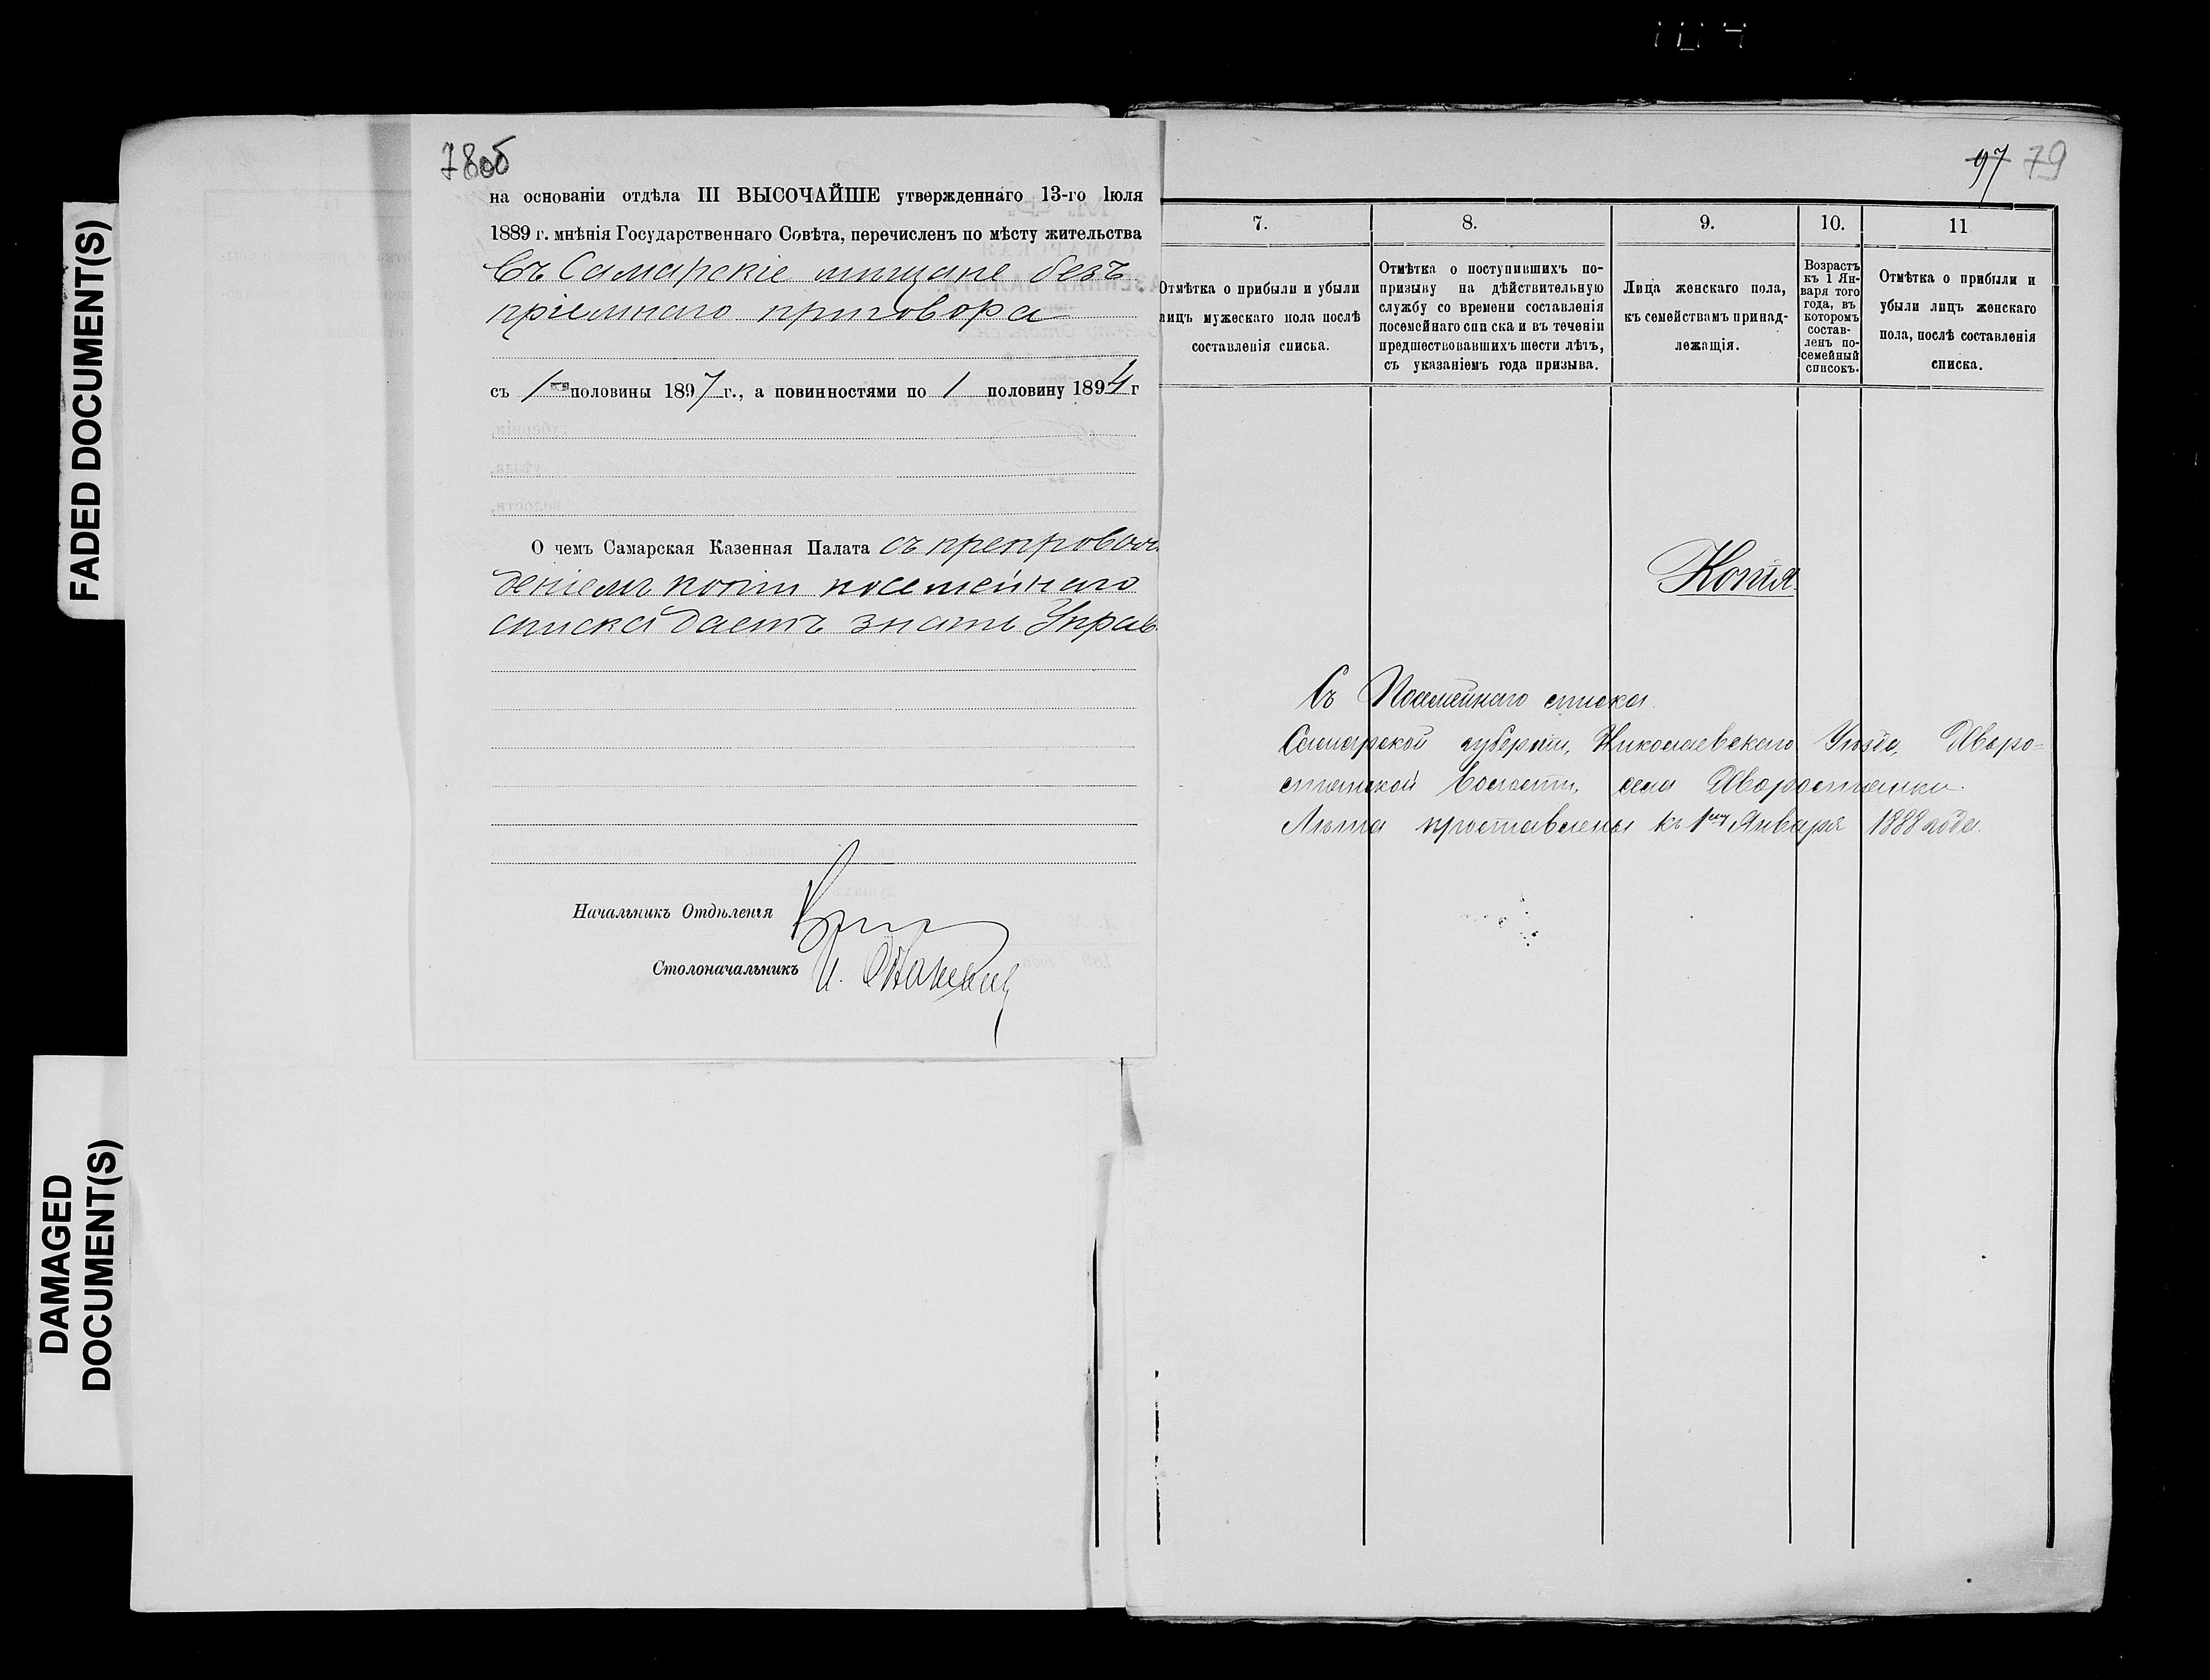 FADED DOCUMENT(S)
DAMAGED
DOCUMENT(S)
78об
на основаніи отдѣла III ВЫСОЧАЙШЕ утвержденнаго 13-го Іюля
1889 г. мнѣнія Государственнаго Совѣта, перечисленъ по мѣсту жительства
въ Самарскіе мѣщане безъ
пріемнаго приговора
съ 1 половины 1897 г., а повинностями по 1 половину 1894 г
О чемъ Самарская Казенная Палата съ препровож
деніемъ копіи посемейнаго
списка даетъ знать Управ
Начальникъ Отдѣленія
Столоначальникъ И.
97 79
7.
8.
9.
10.
11
Отмѣтка о прибыли и убыли
лицъ мужескаго пола послѣ
составленія списка.
Отмѣтка о поступившихъ по-
призыву на дѣйствительную
службу со времени составленія
посемейнаго списка и въ теченіи
предшествовавшихъ шести лѣтъ,
съ указаніемъ года призыва.
Лица женскаго пола,
къ семействамъ принад-
лежащія.
Возрастъ
къ 1 Ян-
варя того
года, въ
которомъ
состав-
ленъ по-
семейный
списокъ.
Отмѣтка о прибыли и
убыли лицъ женскаго
пола, послѣ составленія
списка.
Копія.
Съ Посемейнаго списка
Самарской губерніи, Николаевскаго Уѣзда, Дворо=
Волости, села
Лѣта проставлены къ 1му Января 1888 года.